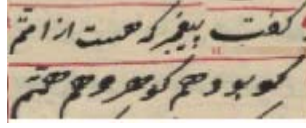 گفت پیغمبر که هست از امتم
کو بود هم گوهر و هم همتم